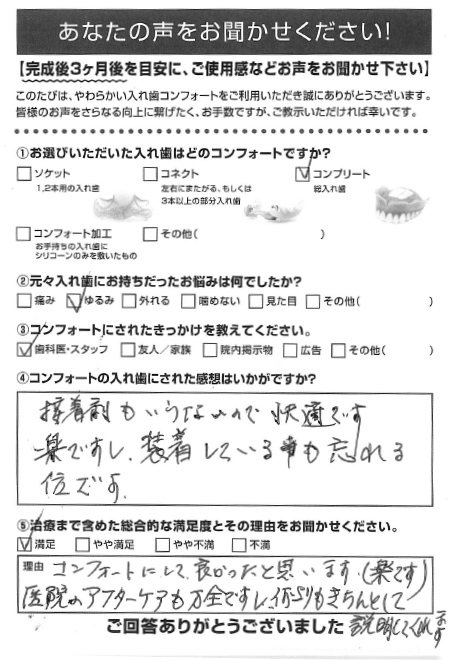 あなたの声をお聞かせください!
【完成後3ヶ月後を目安に、ご使用感などお声をお聞かせ下さい】
このたびは、やわらかい入れ歯コンフォートをご利用いただき誠にありがとうございます。
皆様のお声をさらなる向上に繋げたく、お手数ですが、ご教示いただければ幸いです。
①お選びいただいた入れ歯はどのコンフォートですか?
ソケット
1,2本用の入れ歯
コネクト
左右にまたがる、もしくは
3本以上の部分入れ歯
コンプリート
総入れ歯
コンフォート加工
お手持ちの入れ歯に
シリコーンのみを敷いたもの
その他( )
②元々入れ歯にお持ちだったお悩みは何でしたか?
痛み ゆるみ 外れる 噛めない 見た目 その他( )
③コンフォートにされたきっかけを教えてください。
歯科医・スタッフ 友人/家族 院内掲示物 広告 その他( )
④コンフォートの入れ歯にされた感想はいかがですか?
接着剤もいらないので快適です
楽ですし、装着している事も忘れる
位です。
⑤治療まで含めた総合的な満足度とその理由をお聞かせください。
満足 やや満足 やや不満 不満
理由 コンフォートにして良かったと思います。(楽です)
医院のアフターケアも万全ですし、何よりもきちんとして
説明してくれます
ご回答ありがとうございました